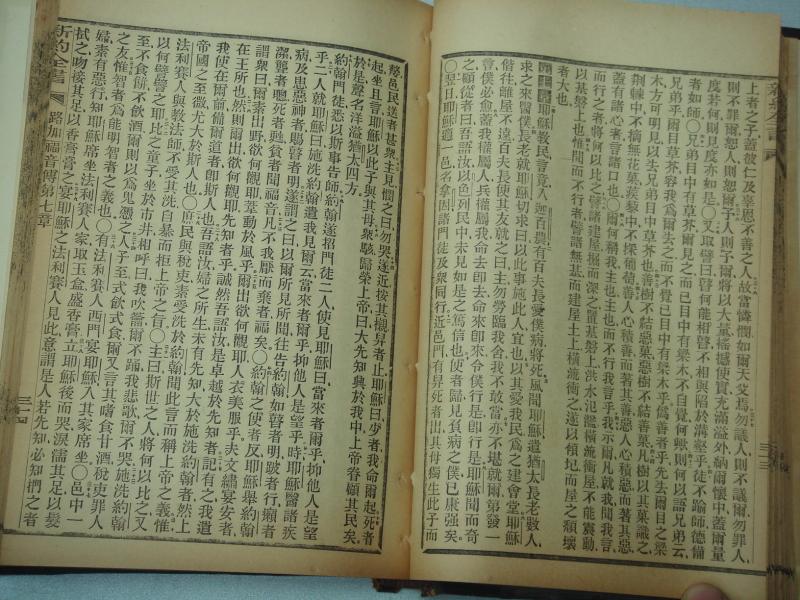 上者之子蓋彼仁及辜恩不善之人故當憐憫如爾天父焉勿議人則不議爾勿罪人
則不罪爾恕人則恕爾予人則予爾將以大量搖撼使實充滿溢外納爾懷中蓋爾量
度若何則見度亦如是○又取譬曰瞽何能相瞽不相與陷於溝壑乎徒不踰師德備
者如師○兄弟目中有草芥爾見之而己目中有梁木不自覺何與則何以語兄弟云
兄弟乎爾目有草芥容我為爾去之而不覺己目中有梁木乎偽善者乎先去爾目之梁
木方可明見以去兄弟目中草芥也善樹不結惡菓惡樹不結善菓凡樹以其菓識之
荊棘中不摘無花菓蒺藜中不採葡萄善人心積善而著其善惡人心積惡而著其惡
蓋有諸心者言諸口也○爾何稱我主也主也而不行我言乎我示爾凡就我聞我言
而行之者將何以比之譬諸建屋掘而深之置基磐上洪水氾濫橫流衝屋不能震動
以基磐上也惟聞而不行者譬諸無基而建屋土上橫流衝之遂以傾圮而屋之頹壞
者大也
耶穌教民言竟入迦百農有百夫長愛僕病將死風聞耶穌遣猶太長老數人
求之來醫僕長老就耶穌切求曰以此事施此人宜也以其愛我民為之建會堂耶穌
偕往離屋不遠百夫長使其友就之曰主勿勞臨我舍我不敢當亦不堪就爾第發一
言僕必愈蓋我權屬人兵權屬我命去即去命來即來令僕行是即行是耶穌聞而奇
之顧從者曰吾語汝以色列民中未見如是之篤信也使者歸見負病之僕已康強矣
○翌日耶穌適一邑名拿因諸門徒及眾同行近邑門有舁死者出其母獨生此子而
嫠邑民送者甚眾主見憫之曰勿哭遂近按其櫬舁者止耶穌曰少者我命爾起死者
起坐且言耶穌以此子與其母眾駭歸榮上帝曰大先知興於我中上帝眷顧其民矣
於是聲名洋溢猶太四方
約翰門徒悉以斯事告師約翰遂招門徒二人使見耶穌曰當來者爾乎抑他人是望
乎二人就耶穌曰施洗約翰遣我見爾云當來者爾乎抑他人是望乎時耶穌醫諸疾
病及患惡神者賜瞽者明遂謂之曰以爾所見所聞往告約翰如瞽者明跛者行癩者
潔聾者聰死者甦貧者聞福音凡不我厭而棄者福矣○約翰之使者反耶穌舉約翰
謂眾曰爾素出野欲何觀耶葦動於風乎爾出欲何觀耶人衣美服乎夫文繡宴安者
在王所也然則爾出欲何觀耶先知者乎誠然吾語汝是卓越於先知者記有之我遣
我使在爾前備爾道者即斯人也吾語汝婦之所生未有先知大於施洗約翰者然上
帝國之至微尤大於斯人也○庶民與稅吏素受洗於約翰聞此言而稱上帝之義惟
法利賽人與教法師不受其洗自暴而拒上帝之旨○主曰斯世之人將何以比之又
以何譬譬之耶比之童子坐於市井相呼曰我吹籥爾不踊我悲歌爾不哭施洗約翰
至不食餅不飲酒爾則以為鬼憑之人子至式飲式食爾又言其嗜食甘酒稅吏罪人
之友惟智者為能明智者之義也○有法利賽人西門宴耶穌入其家席坐○邑中一
婦素有惡行知耶穌席坐法利賽人家取玉盒盛香膏立耶穌後而哭淚濡其足以髮
拭之吻接其足以香膏膏之宴耶穌之法利賽人見此意謂是人若先知必知捫之者
新約全書
路加福音傳第七章
三十四